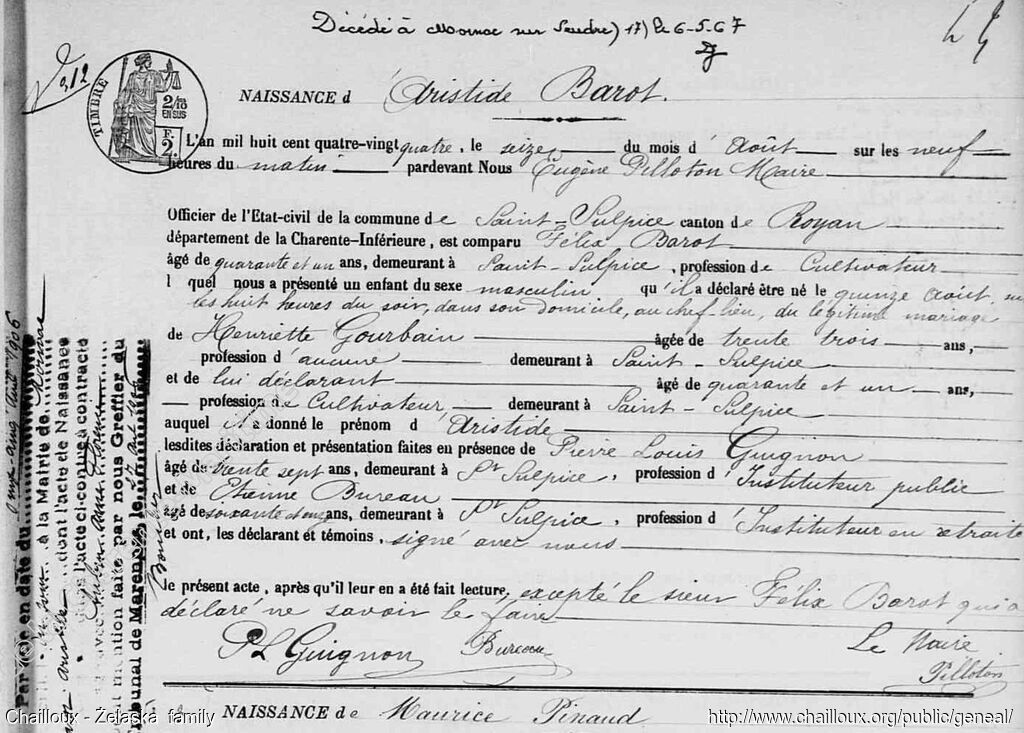 Décédé à Mornac sur Seudre) 17) le 6-5-67
TIMBRE
2/10
EN SUS
F.
2.
NAISSANCE d'Aristide Barot.
L'an mil huit cent quatre-vingt quatre, le seize du mois d'Août sur les neuf
heures du matin pardevant Nous Eugène Pilloton Maire
Officier de l'Etat-civil de la commune de Saint-Sulpice canton de Royan
département de la Charente-Inférieure, est comparu Félix Barot
âgé de quarante et un ans, demeurant à Saint-Sulpice, profession de Cultivateur
l quel nous a présenté un enfant du sexe masculin qu'il a déclaré être né le quinze Août, sur
les huit heures du soir, dans son domicile, au chef-lieu, du légitime mariage
de Henriette Gourbain âgée de trente trois ans,
profession d'aucune demeurant à Saint-Sulpice
et de lui déclarant âgé de quarante et un ans,
profession de Cultivateur demeurant à Saint-Sulpice
auquel il a donné le prénom d'Aristide
lesdites déclaration et présentation faites en présence de Pierre Louis Guignon
âgé de trente sept ans, demeurant à St Sulpice, profession d'Instituteur public
et de Etienne Bureau
âgé de soixante et onze ans, demeurant à St Sulpice, profession d'Instituteur en retraite
et ont, les déclarant et témoins, signé avec nous
le présent acte, après qu'il leur en a été fait lecture, excepté le sieur Félix Barot qui a
déclaré ne savoir le faire
PL Guignon Bureau Le Maire
Pilloton
NAISSANCE de Maurice Pinaud
Par acte en date du onze avril 1906
à la Mairie de
dont l'acte de Naissance
l'acte ci-contre a contracté
mention faite par nous Greffier du
Tribunal de Marennes, le
Chailloux - Żelaska family
http://www.chailloux.org/public/geneal/